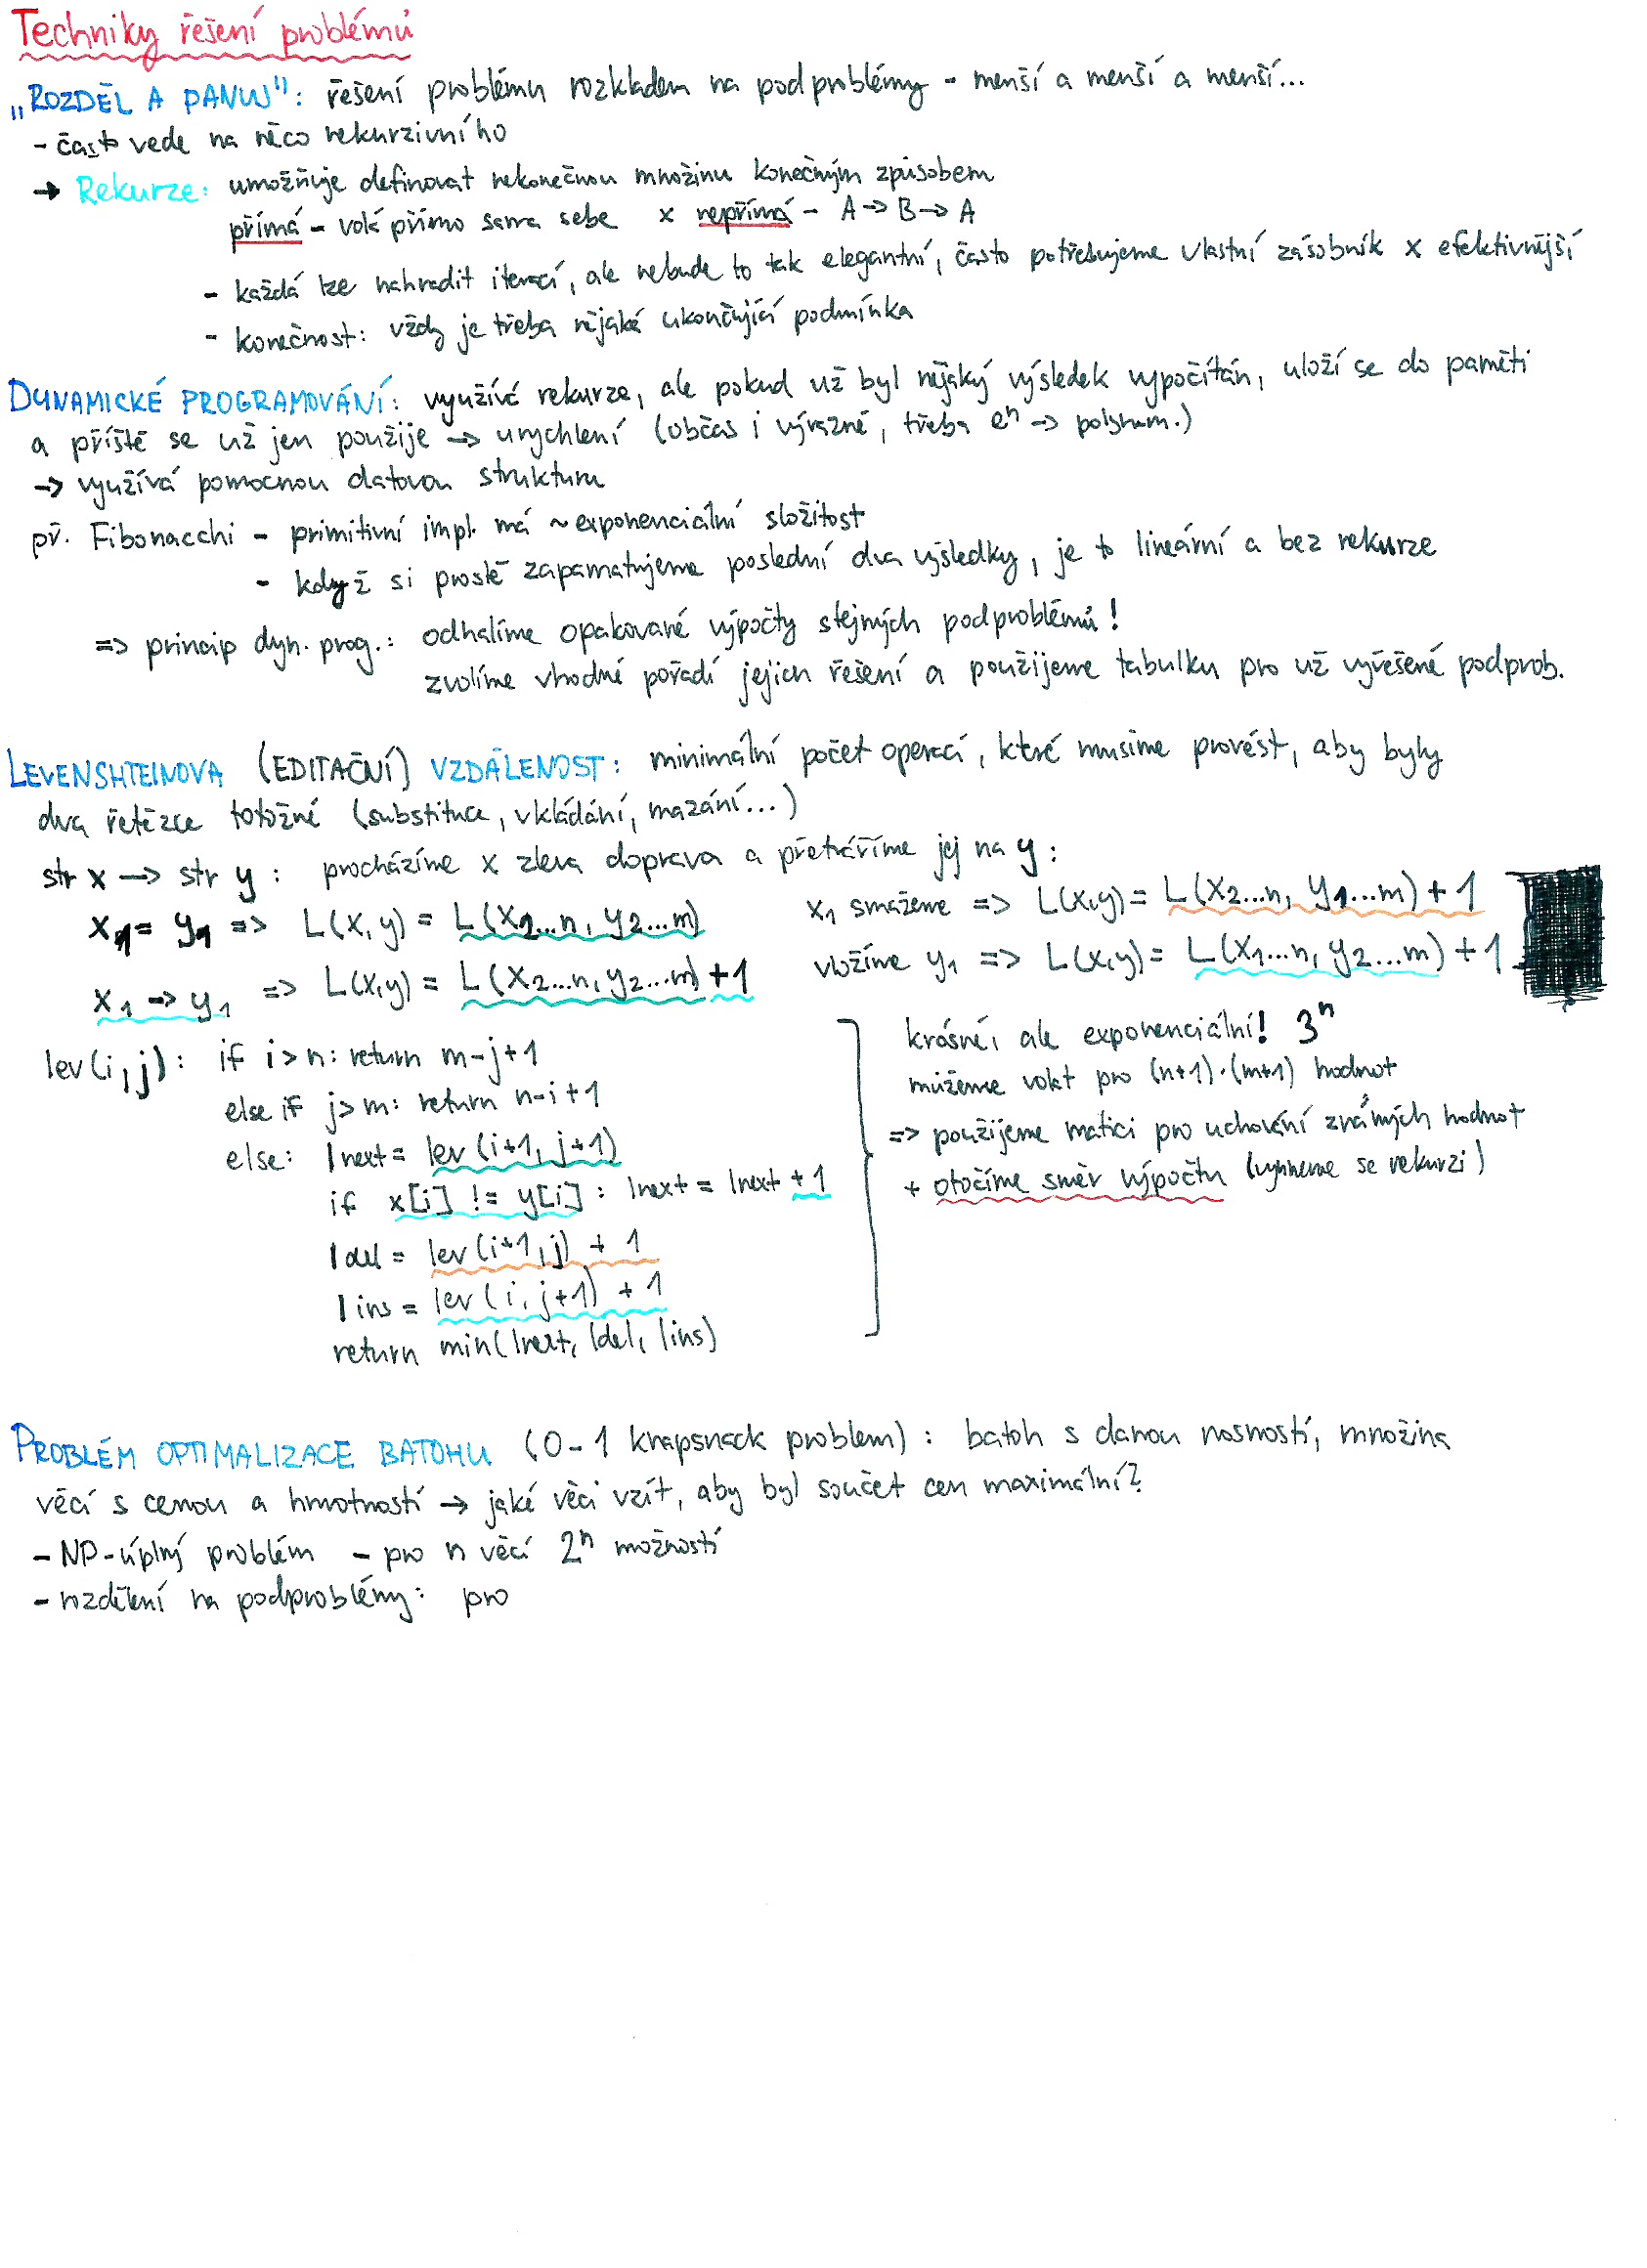 Techniky řešení problémů
„ROZDĚL A PANUJ": řešení problému rozkladem na podproblémy - menší a menší a menší...
- často vede na něco rekurzivního
→ Rekurze: umožňuje definovat nekonečnou množinu konečným způsobem
přímá - volá přímo sama sebe x nepřímá - A → B → A
- každá lze nahradit iterací, ale nebude to tak elegantní, často potřebujeme vlastní zásobník x efektivnější
- konečnost: vždy je třeba nějaká ukončující podmínka
DYNAMICKÉ PROGRAMOVÁNÍ: využívá rekurze, ale pokud už byl nějaký výsledek vypočítán, uloží se do paměti
a příště se už jen použije → urychlení (občas i výrazné, třeba eⁿ → polynom.)
→ využívá pomocnou datovou strukturu
př. Fibonacchi - primitivní impl. má ~exponenciální složitost
- když si prostě zapamatujeme poslední dva výsledky, je to lineární a bez rekurze
=> princip dyn. prog.: odhalíme opakované výpočty stejných podproblémů!
zvolíme vhodné pořadí jejich řešení a použijeme tabulku pro už vyřešené podprob.
LEVENSHTEINOVA (EDITAČNÍ) VZDÁLENOST: minimální počet operací, které musíme provést, aby byly
dva řetězce totožné (substituce, vkládání, mazání...)
str x → str y : procházíme x zleva doprava a přetváříme jej na y :
x₁ = y₁ => L(x, y) = L(x₂...n, y₂...m) x₁ smažeme => L(x,y) = L(x₂...n, y₁...m) + 1
x₁ → y₁ => L(x,y) = L(x₂...n, y₂...m) + 1 vložíme y₁ => L(x,y) = L(x₁...n, y₂...m) + 1
lev(i,j): if i > n: return m-j+1
else if j > m: return n-i+1
else: lnext = lev(i+1, j+1)
if x[i] != y[i] : lnext = lnext + 1
ldel = lev(i+1, j) + 1
lins = lev(i, j+1) + 1
return min(lnext, ldel, lins)
krásné, ale exponenciální! 3ⁿ
můžeme volat pro (n+1)·(m+1) hodnot
=> použijeme matici pro uchování známých hodnot
+ otočíme směr výpočtu (vyhneme se rekurzi)
PROBLÉM OPTIMALIZACE BATOHU (0-1 knapsnack problem) : batoh s danou nosností, množina
věcí s cenou a hmotností → jaké věci vzít, aby byl součet cen maximální?
- NP-úplný problém - pro n věcí 2ⁿ možností
- rozdělení na podproblémy: pro